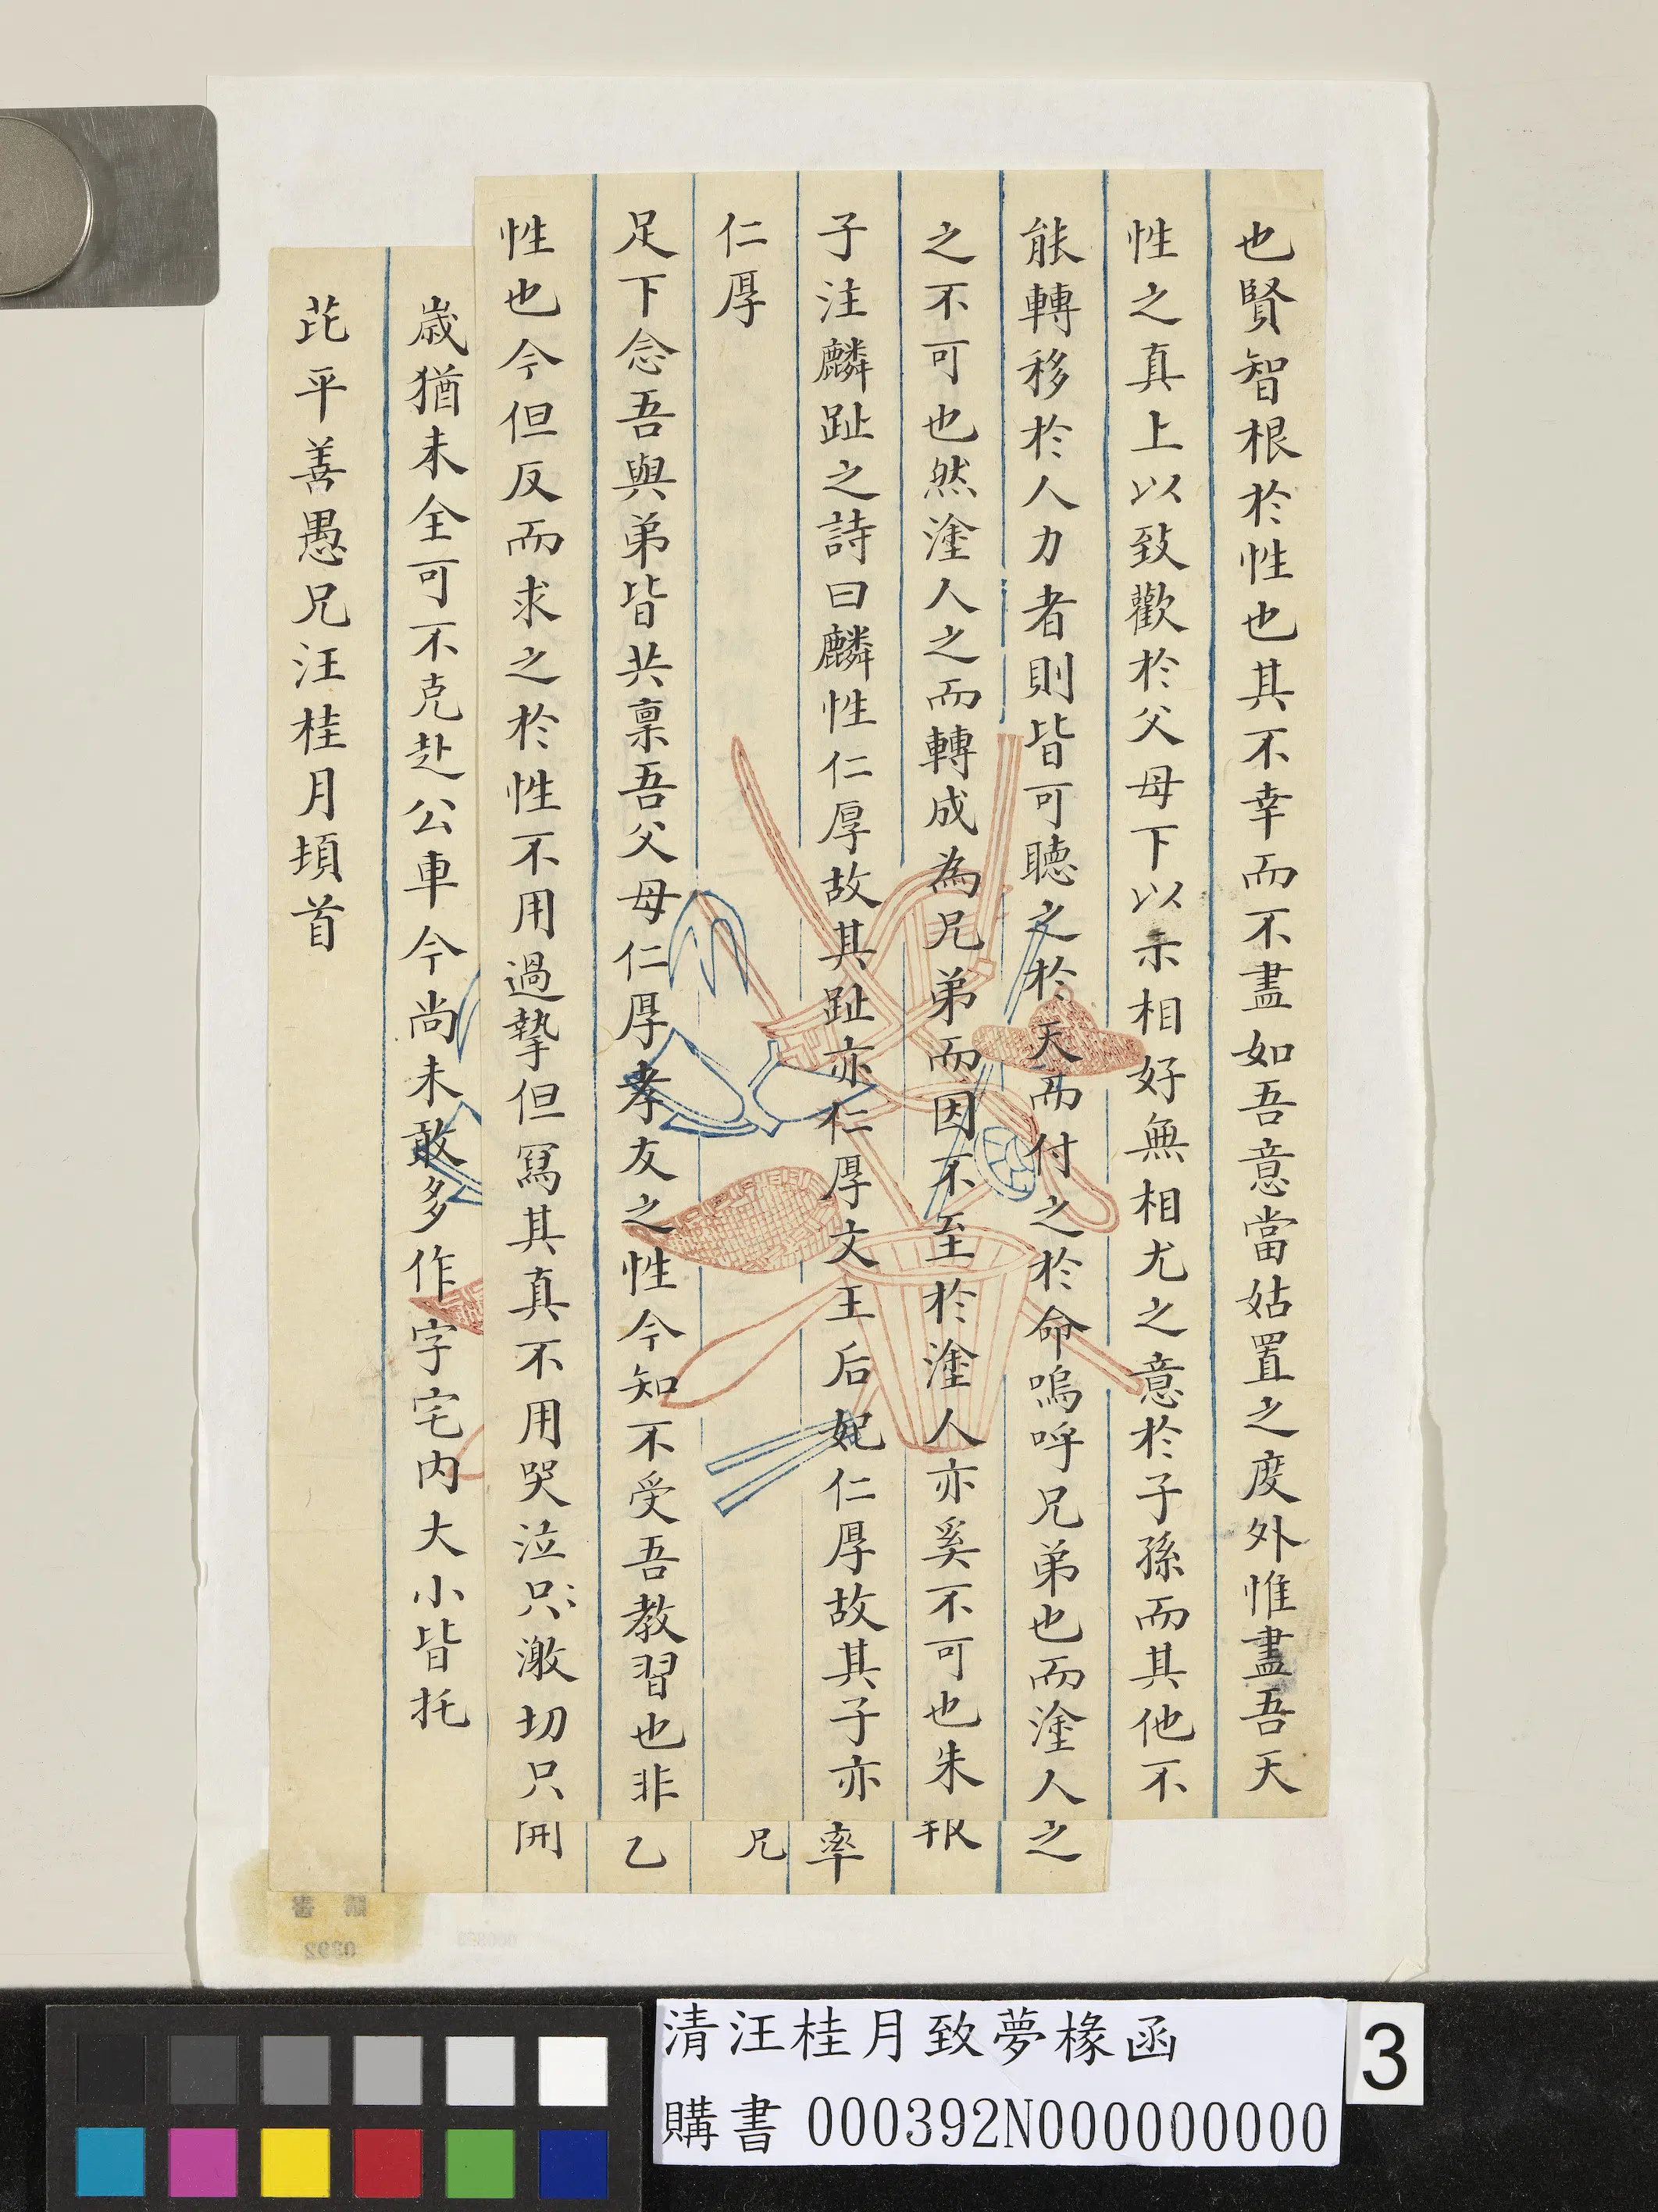 也賢智根於性也其不幸而不盡如吾意當姑置之度外惟盡吾天
性之真上以致歡於父母下以示相好無相尤之意於子孫而其他不
能轉移於人力者則皆可聽之於天而付之於命嗚呼兄弟也而塗人之
之不可也然塗人之而轉成為兄弟而因不至於塗人亦奚不可也朱
子注麟趾之詩曰麟性仁厚故其趾亦仁厚文王后妃仁厚故其子亦
仁厚
足下念吾與弟皆共稟吾父母仁厚孝友之性今知不受吾教習也非
性也今但反而求之於性不用過摯但寫其真不用哭泣只激切只
歲猶未全可不克赴公車今尚未敢多作字宅內大小皆托
芘平善愚兄汪桂月頓首
之
率
兄
乙
清汪桂月致夢椽函
購書 000392N000000000
3
購書
0392